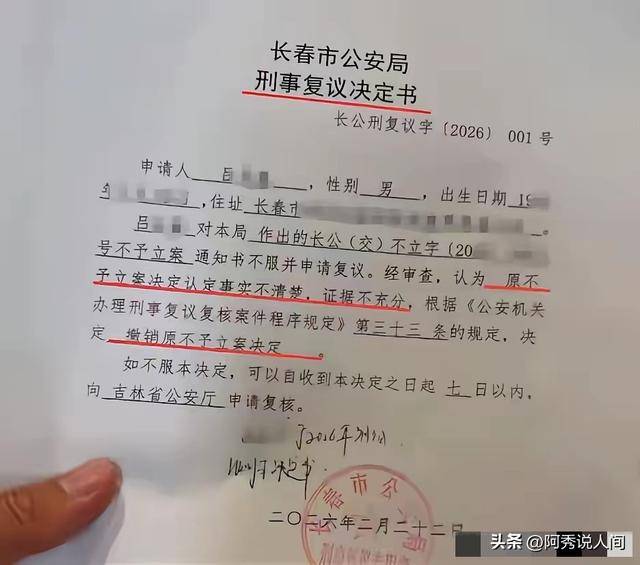 长春市公安局
刑事复议决定书
长公刑复议字〔2026〕 001 号
申请人 吕 ，性别 男 ，出生日期 19
，住址 长春市 。
吕 对本局 作出的长公（交）不立字〔20
号不予立案 通知书不服并申请复议。经审查，认为 原不
予立案决定认定事实不清楚，证据不充分，根据《公安机关
办理刑事复议复核案件程序规定》第三十三 条的规定，决
定 撤销原不予立案决定 。
如不服本决定，可以自收到本决定之日起 七 日以内，
向 吉林省公安厅 申请复核。
于2026年
决定书
长春市公
二〇二六年二月二十二日
头条 @阿秀说人间